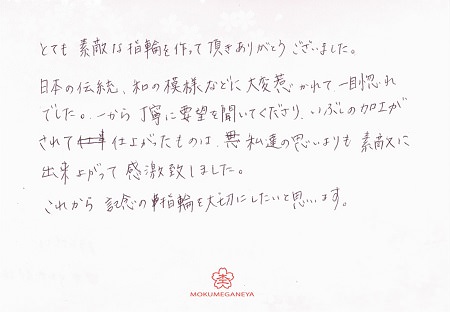 とても 素敵な指輪を作って頂きありがとうございました。
日本の伝統、和の模様などに大変惹かれて、一目惚れ
でした。一から丁寧に要望を聞いてくださり、いぶしの加工が
されて仕上がったものは、私達の思いよりも素敵に
出来上がって感激致しました。
これから記念の指輪を大切にしたいと思います。
MOKUMEGANEYA